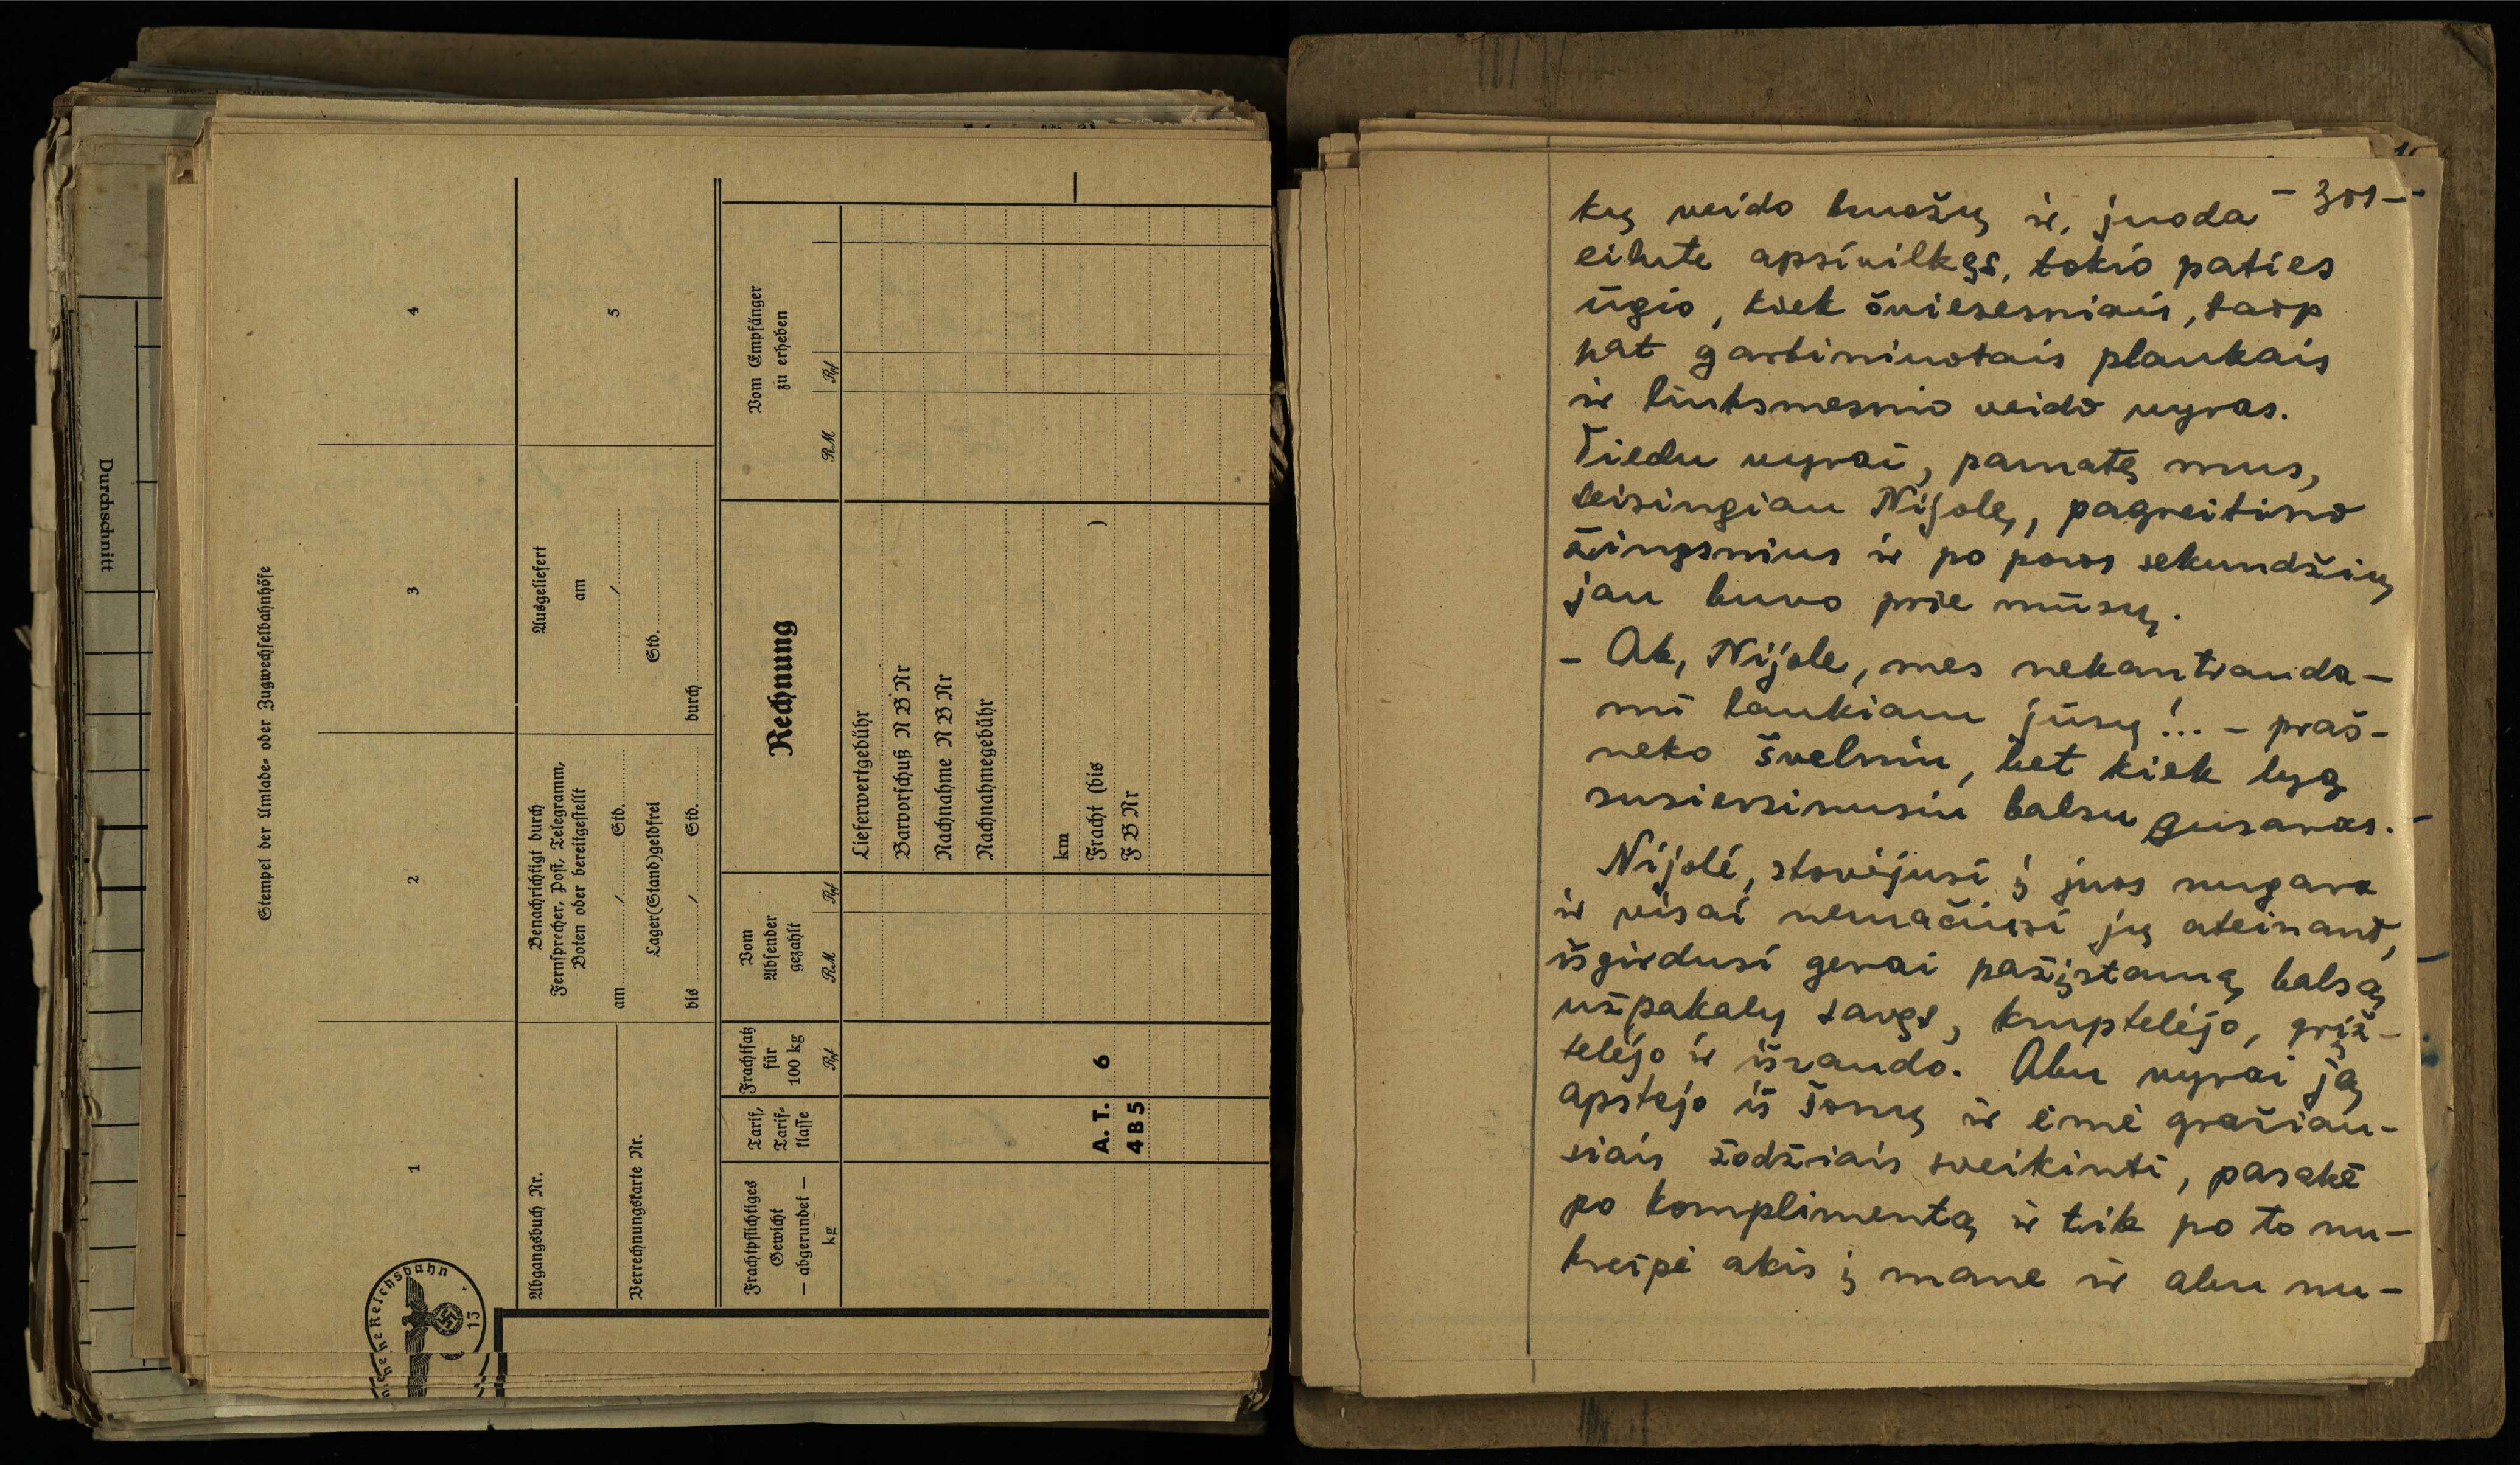 Durchschnitt
Stempel der Umlade- oder Zugwechselbahnhöfe
1
2
3
4
Abgangsbuch Nr.
Verrechnungskarte Nr.
Benachrichtigt durch
Fernsprecher, Post, Telegramm,
Boten oder bereitgestellt
am / Std.
Lager(Stand)geldfrei
bis / Std.
Ausgeliefert
am
/
Std.
durch
5
Frachtpflichtiges
Gewicht
— abgerundet —
kg
Tarif,
Tarif-
klasse
Frachtsatz
für
100 kg
Rpf
Vom
Absender
gezahlt
RM Rpf
Rechnung
Vom Empfänger
zu erheben
RM Rpf
Lieferwertgebühr
Barvorschuß N B Nr
Nachnahme N B Nr
Nachnahmegebühr
km
A. T. 6 Fracht (bis )
4 B 5 F B Nr
Reichsbahn
13
- 301 -
kų veido bruožų ir, juoda
eilute apsivilkęs, tokio paties
ūgio, kiek šviesesniais, taip
pat garbiniuotais plaukais
ir linksmesnio veido vyras.
Tiedu vyrai, pamatę mus,
teisingiau Nijolę, pagreitino
žingsnius ir po poros sekundžių
jau buvo prie mūsų.
- Ak, Nijole, mes nekantrauda-
mi laukiam jūsų!... - praš-
neko švelniu, bet kiek lyg
susiersinusiu balsu Gusaras. -
Nijolė, stovėjusi į juos nugara
ir visai nemačiusi jų ateinant,
išgirdusi gerai pažįstamą balsą
užpakaly savęs, kruptelėjo, grįž-
telėjo ir išraudo. Abu vyrai ją
apstojo iš šonų ir ėmė gražiau-
siais žodžiais sveikinti, pasakė
po komplimentą ir tik po to nu-
kreipė akis į mane ir abu nu-